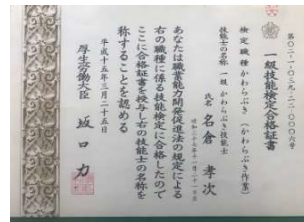 第〇二-一-〇三九-二三-〇〇〇六号
一級技能検定合格証書
検定職種 かわらぶき(かわらぶき作業)
技能士の名称 一級 かわらぶき技能士
氏名 名倉 孝次
あなたは職業能力開発促進法の規定による
右の職種に係る技能検定に合格したので
ここに合格証書を授与し右の技能士の名称を
称することを認める
平成十五年三月二十五日
厚生労働大臣 坂口 力